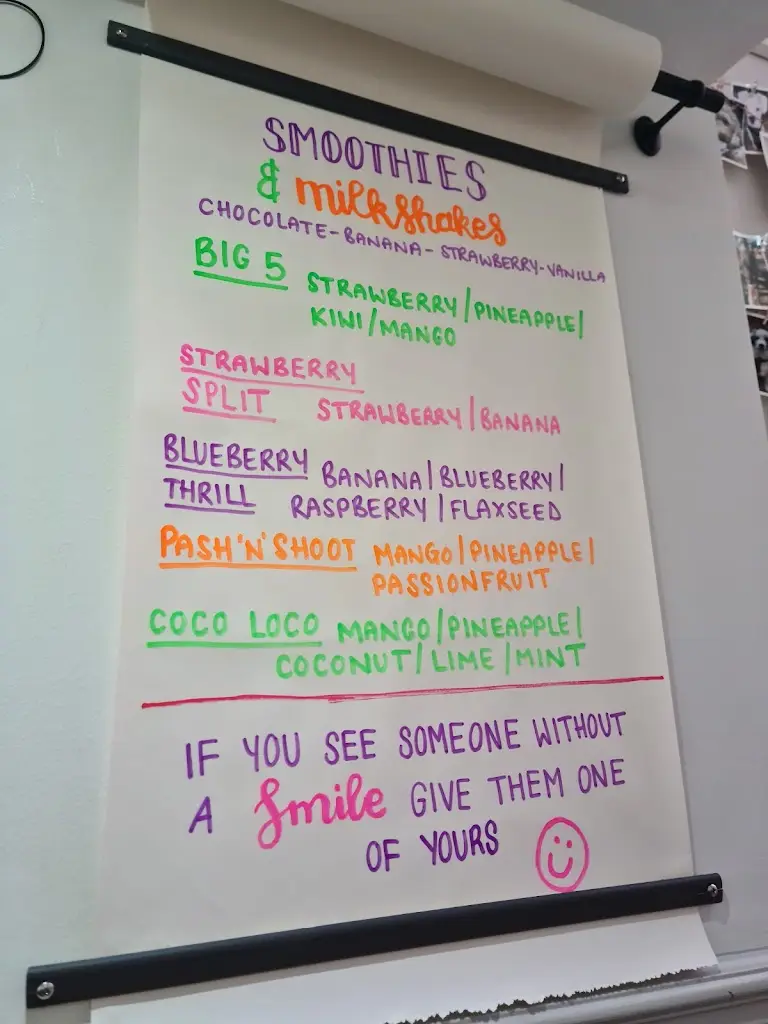 SMOOTHIES
& milkshakes
CHOCOLATE-BANANA-STRAWBERRY-VANILLA
BIG 5 STRAWBERRY/PINEAPPLE/
KIWI/MANGO
STRAWBERRY
SPLIT STRAWBERRY/BANANA
BLUEBERRY BANANA/BLUEBERRY/
THRILL RASPBERRY/FLAXSEED
PASH 'N' SHOOT MANGO/PINEAPPLE/
PASSIONFRUIT
COCO LOCO MANGO/PINEAPPLE/
COCONUT/LIME/MINT
IF YOU SEE SOMEONE WITHOUT
A smile GIVE THEM ONE
OF YOURS